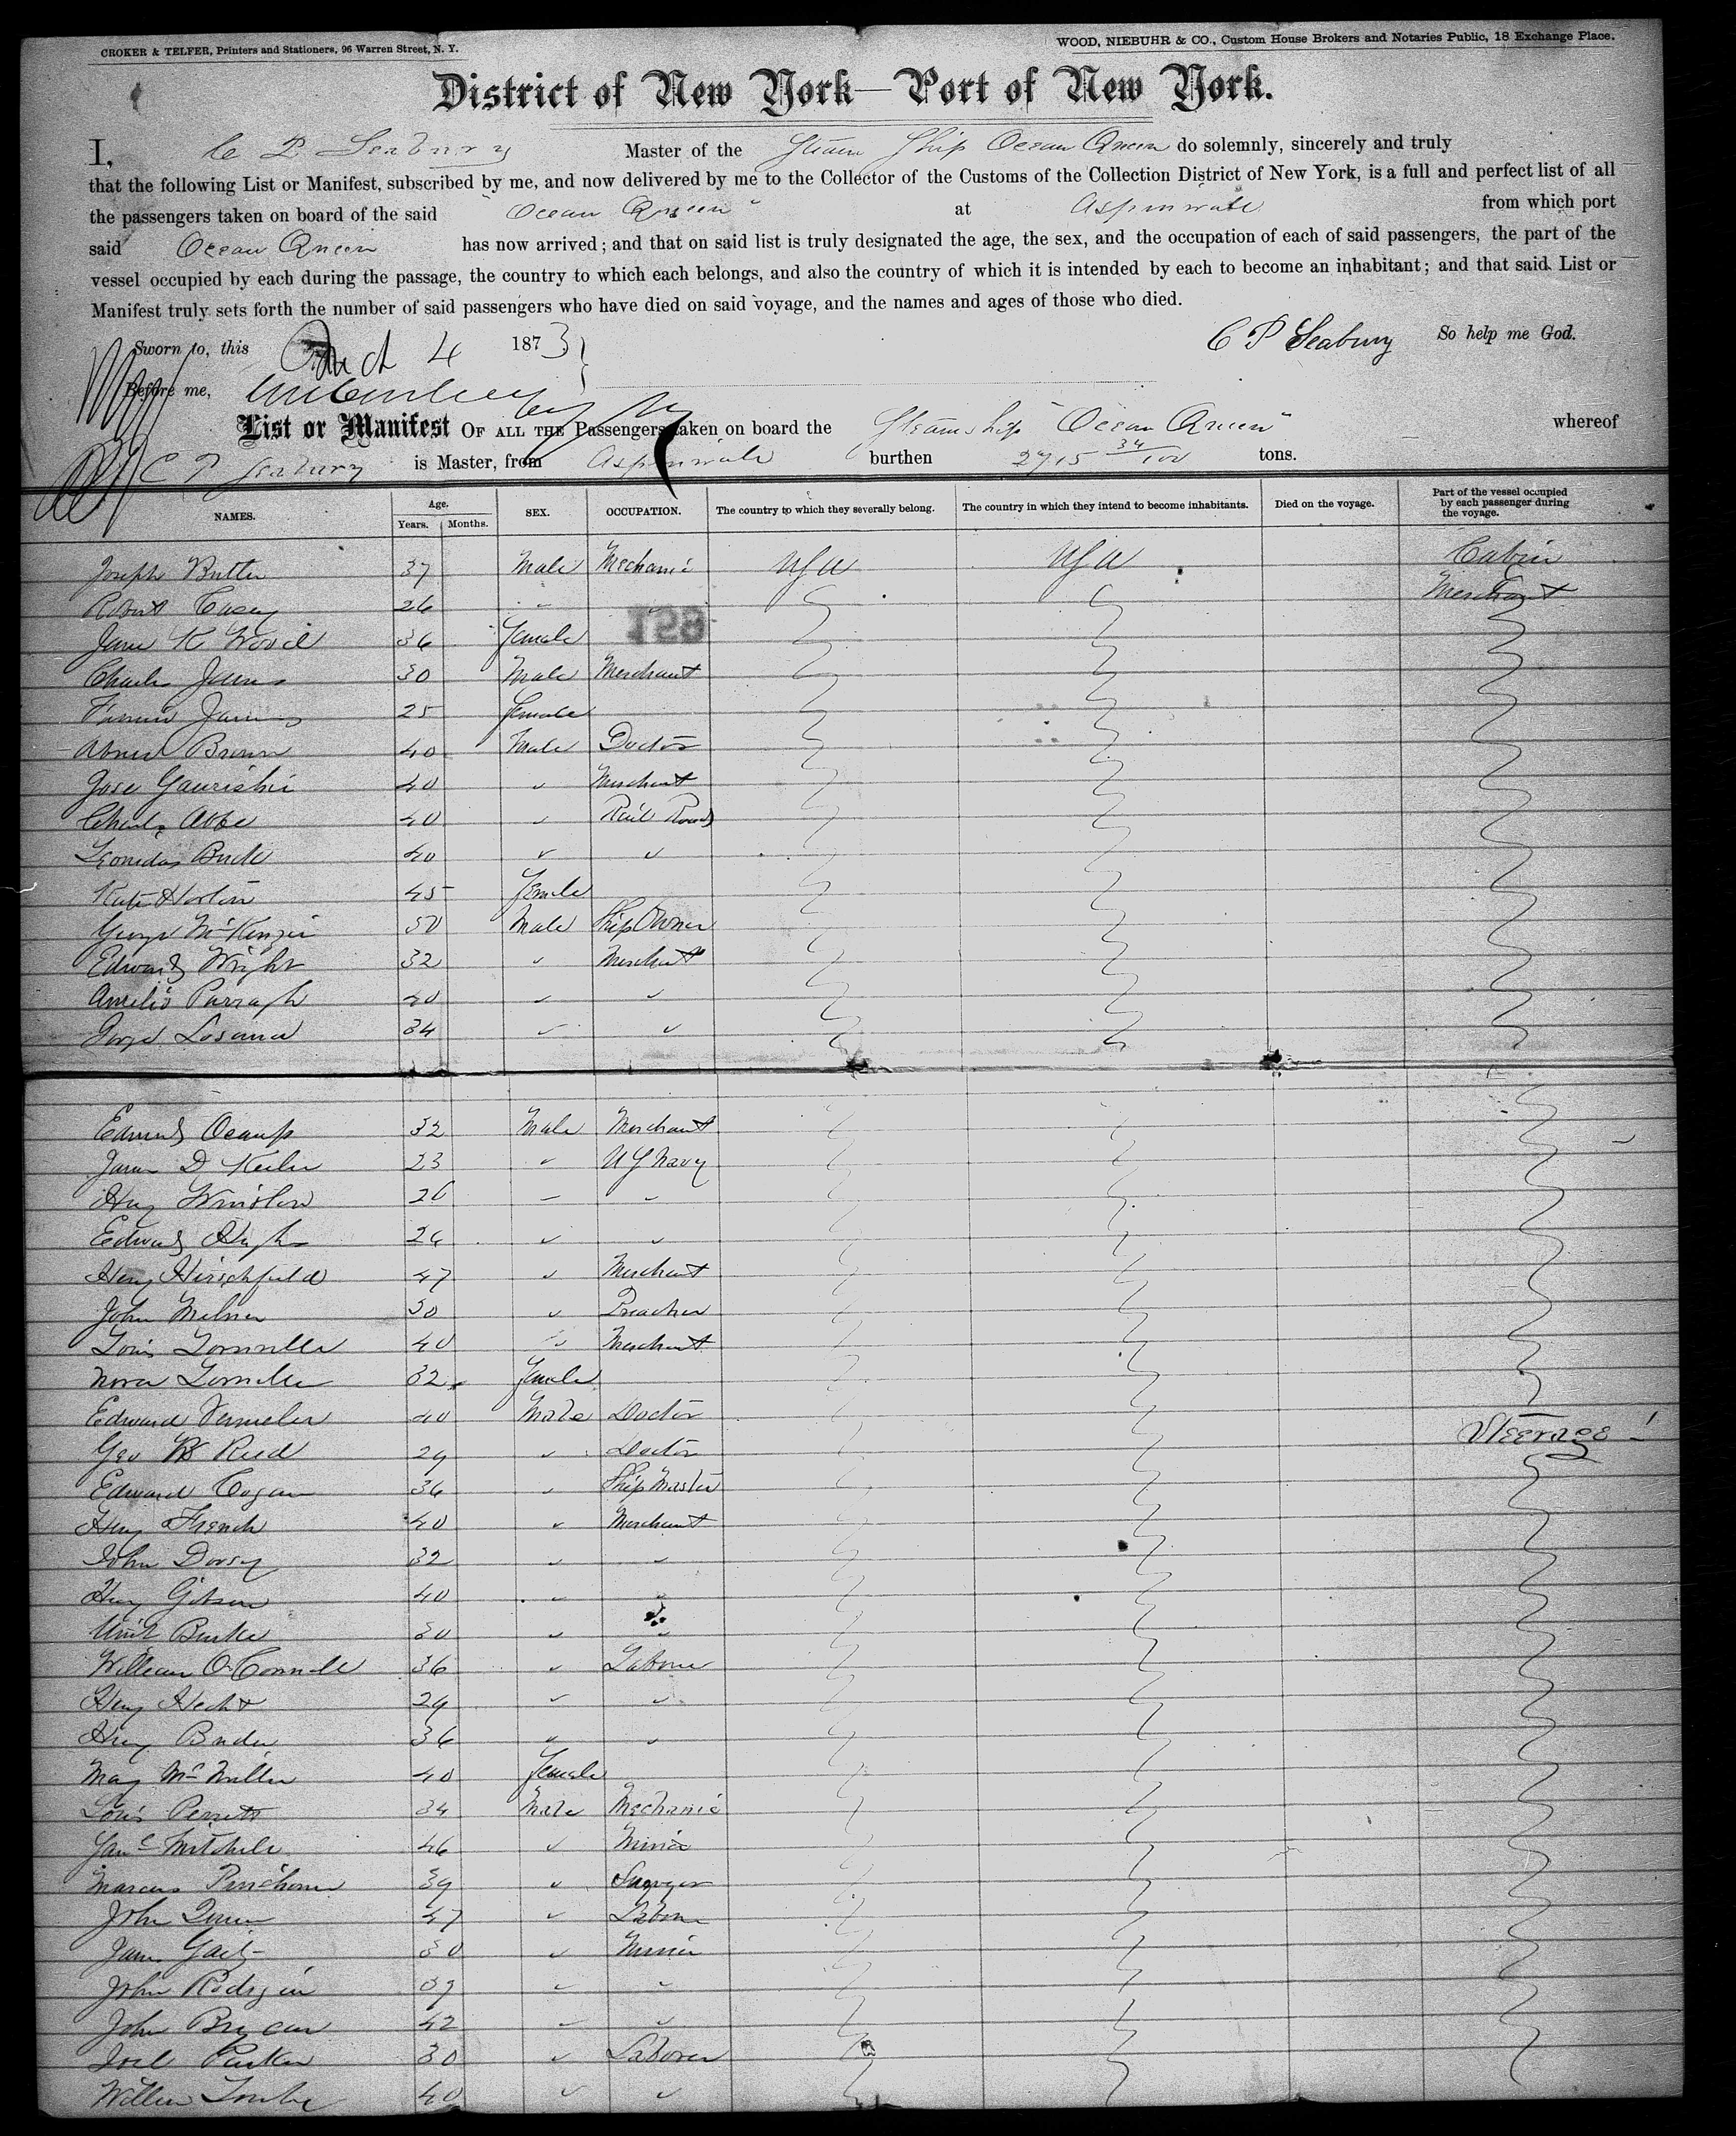 CROKER & TELFER, Printers and Stationers, 96 Warren Street, N. Y.
WOOD, NIEBUHR & CO., Custom House Brokers and Notaries Public, 18 Exchange Place.
District of New York—Port of New York.
I, C P Seabury Master of the Steam Ship Ocean Queen do solemnly, sincerely and truly
that the following List or Manifest, subscribed by me, and now delivered by me to the Collector of the Customs of the Collection District of New York, is a full and perfect list of all
the passengers taken on board of the said "Ocean Queen" at Aspinwall from which port
said Ocean Queen has now arrived; and that on said list is truly designated the age, the sex, and the occupation of each of said passengers, the part of the
vessel occupied by each during the passage, the country to which each belongs, and also the country of which it is intended by each to become an inhabitant; and that said List or
Manifest truly sets forth the number of said passengers who have died on said voyage, and the names and ages of those who died.
Sworn to, this 4 1873 C P Seabury So help me God.
Before me,
List or Manifest OF ALL THE Passengers taken on board the Steamship "Ocean Queen" whereof
C P Seabury is Master, from Aspinwall burthen 2715 34/100 tons.
NAMES. Age. Years. Months. SEX. OCCUPATION. The country to which they severally belong. The country in which they intend to become inhabitants. Died on the voyage. Part of the vessel occupied by each passenger during the voyage.
Joseph Butler 37 Male Mechanic USA USA Cabin
Robert Casey 26 " " Merchant
Jane K Wood 36 Female
Charles James 30 Male Merchant
Fannie James 25 Female
Abner Brown 40 Male Doctor
Jose 40 " Merchant
Charles Abbe 40 " Rail Road
Leonidas Buck 40 " "
Kate Horton 45 Female
George McKenzie 50 Male Ship Owner
Edward Wright 32 " Merchant
Amelio 40 " "
34 " "
Edmund 32 Male Merchant
James D 23 " U S Navy
Hny Winslow 26 " "
Edward 26 " "
Henry Hirschfield 47 " Merchant
John Milner 50 " Preacher
Louis 40 " Merchant
Nora 32 Female
Edward 40 Male Doctor
Geo W Reed 29 " Doctor Steerage
Edward Cogan 36 " Ship Master
Heny French 40 " Merchant
John Dorsey 32 " "
Heny Gibson 40 " "
Burke 30 " "
William O'Connell 36 " Laborer
Heny Hecht 29 " "
Heny 36 " "
Mary McMiller 40 Female
Louis Perrett 34 Male Mechanic
Jas Mitchell 46 " Miner
Marcus 39 "
John 47 " Laborer
James 30 " Miner
John 39 " "
John 42 " "
Joel Parker 30 " Laborer
William 40 " "